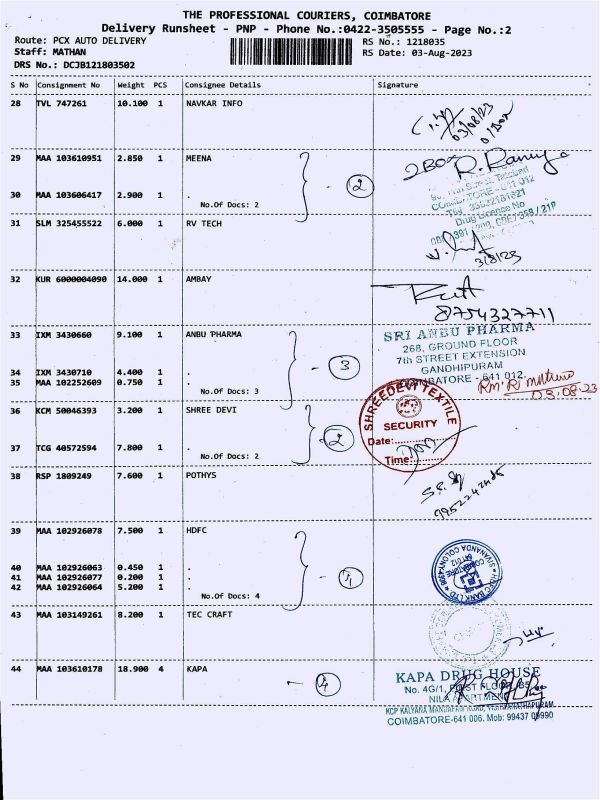 THE PROFESSIONAL COURIERS, COIMBATORE
Delivery Runsheet - PNP - Phone No.:0422-3505555 - Page No.:2
Route: PCX AUTO DELIVERY
RS No.: 1218035
Staff: MATHAN
RS Date: 03-Aug-2023
DRS No.: DCJB121803502
S No Consignment No Weight PCS Consignee Details Signature
28 TVL 747261 10.100 1 NAVKAR INFO
03/08/23
29 MAA 103610951 2.850 1 MEENA
2 BOX
2
30 MAA 103606417 2.900 1 .
No.Of Docs: 2
31 SLM 325455522 6.000 1 RV TECH
3/8/23
32 KUR 6000004090 14.000 1 AMBAY
8754327711
33 IXM 3430660 9.100 1 ANBU PHARMA
SRI ANBU PHARMA
268, GROUND FLOOR
7th STREET EXTENSION
GANDHIPURAM
COIMBATORE - 641 012.
3
34 IXM 3430710 4.400 1 .
35 MAA 102252609 0.750 1 .
No.Of Docs: 3
03.08.23
36 KCM 50046393 3.200 1 SHREE DEVI
SHREEDEVI TEXTILE
SECURITY
Date:
Time:
2
37 TCG 40572594 7.800 1 .
No.Of Docs: 2
38 RSP 1809249 7.600 1 POTHYS
39 MAA 102926078 7.500 1 HDFC
40 MAA 102926063 0.450 1 .
41 MAA 102926077 0.200 1 .
42 MAA 102926064 5.200 1 .
No.Of Docs: 4
4
HDFC BANK LTD
43 MAA 103149261 8.200 1 TEC CRAFT
44 MAA 103610178 18.900 4 KAPA
4
KAPA DRUG HOUSE
No. 4G/1, FIRST FLOOR,
NILA APARTMENT
COIMBATORE-641 006. Mob: 99437 09990